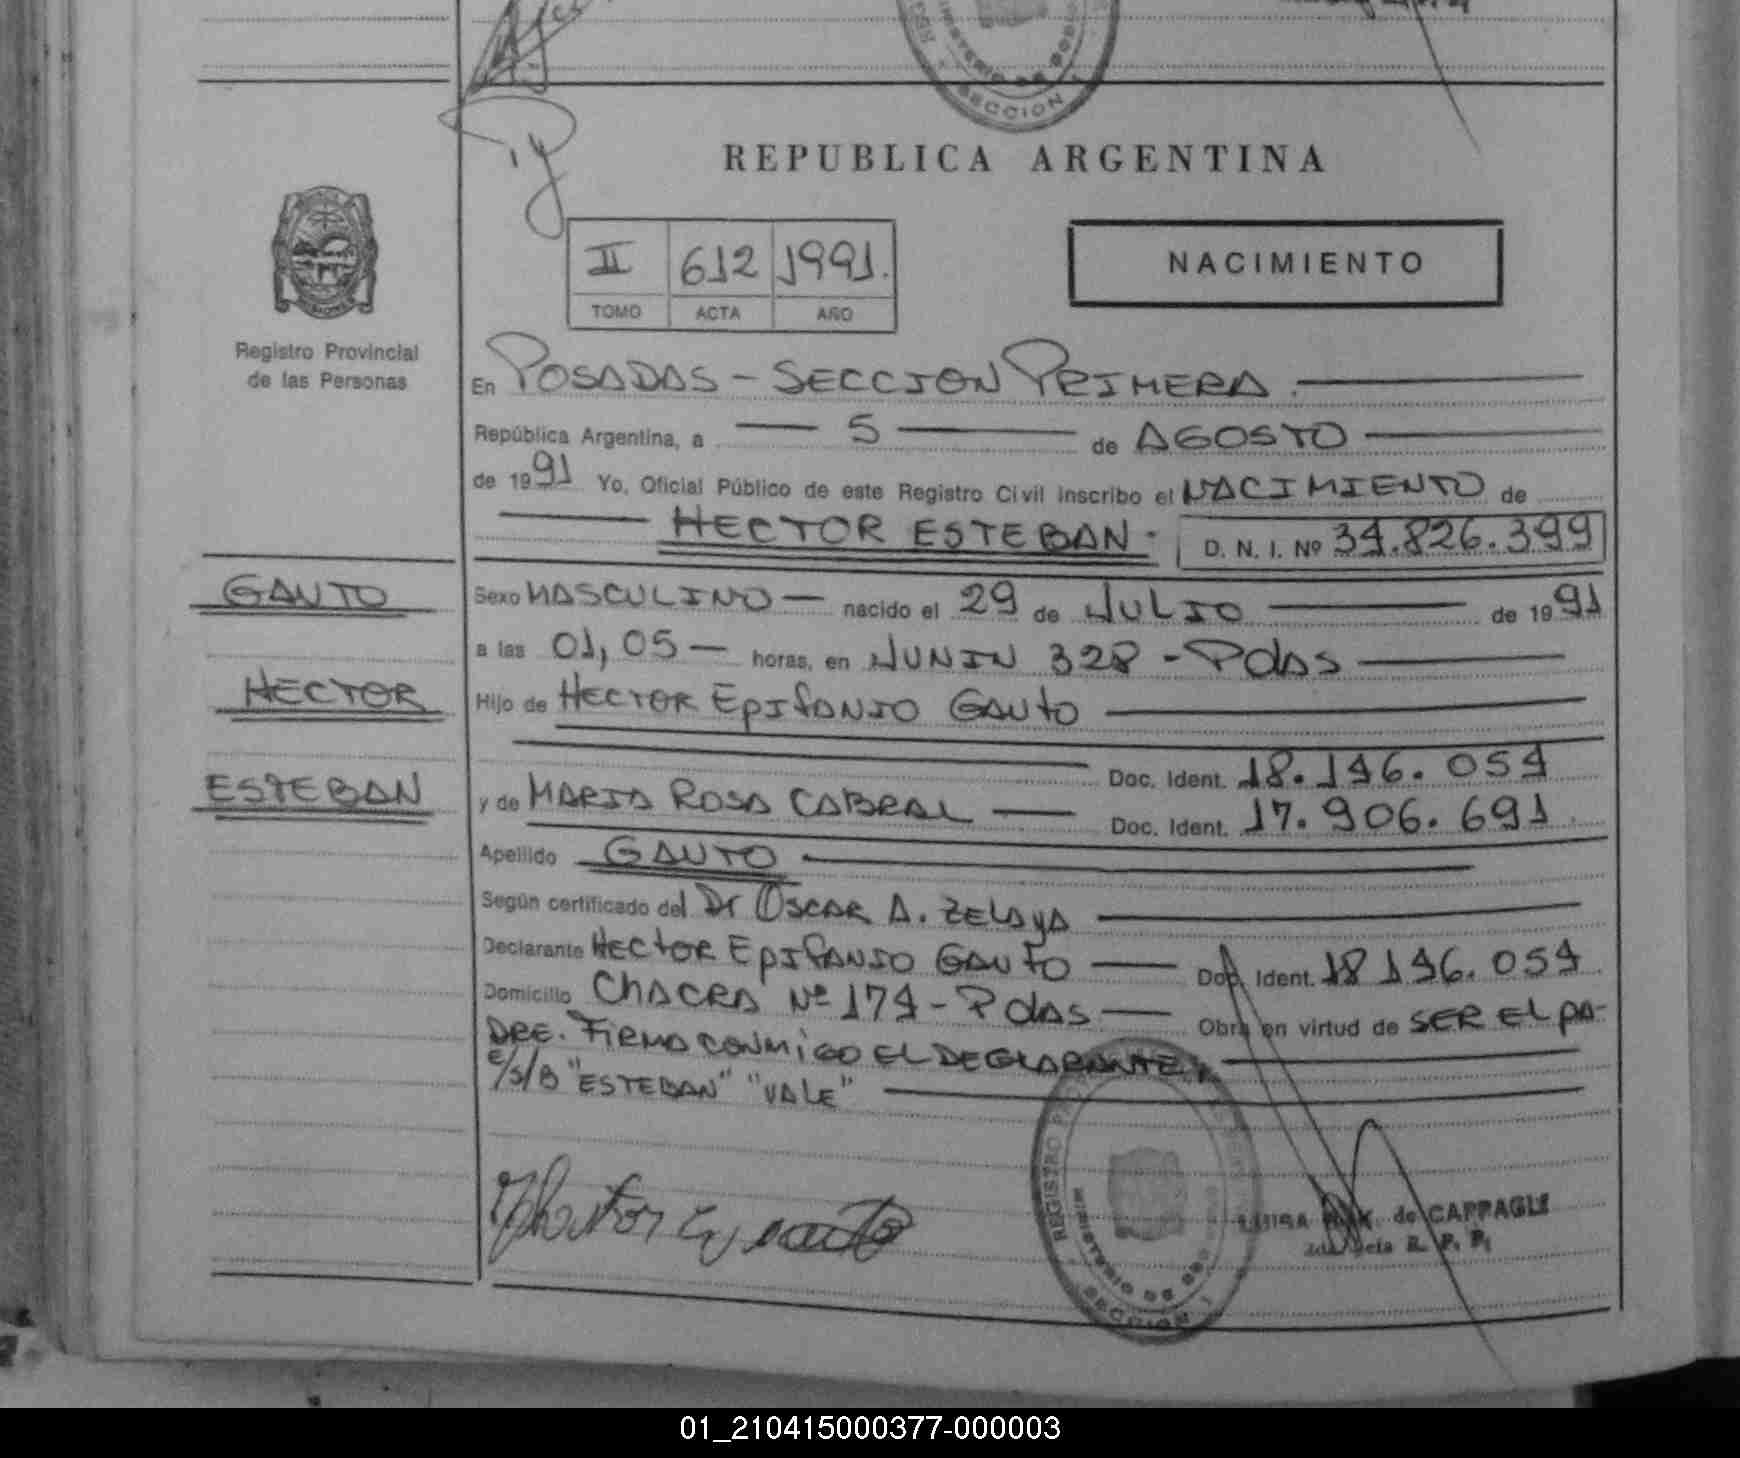 SECCION 1
REPUBLICA ARGENTINA
II 612 1991.
TOMO ACTA AÑO
NACIMIENTO
Registro Provincial
de las Personas
En POSADAS - SECCION PRIMERA.
República Argentina, a 5 de AGOSTO
de 1991 Yo, Oficial Público de este Registro Civil inscribo el NACIMIENTO de
HECTOR ESTEBAN. D. N. I. Nº 34.826.399
GAUTO
HECTOR
ESTEBAN
Sexo MASCULINO nacido el 29 de JULIO de 1991
a las 01,05 horas, en JUNIN 328 - Pdas
Hijo de HECTOR EPIFANIO GAUTO
Doc. Ident. 18.146.054
y de MARIA ROSA CABRAL Doc. Ident. 17.906.691
Apellido GAUTO
Según certificado del Dr OSCAR A. ZELAYA
Declarante HECTOR EPIFANIO GAUTO Doc. Ident. 18 146.054
Domicilio CHACRA Nº 174 - Pdas Obra en virtud de SER EL PA-
DRE. FIRMA CONMIGO EL DECLARANTE.
E/S/B "ESTEBAN" "VALE"
REGISTRO
MINISTERIO DE
SECCION 1
LUISA de CAPPAGLI
R. P. P.
01_210415000377-000003